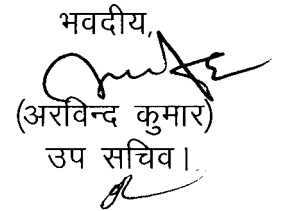 भवदीय,
(अरविन्द कुमार)
उप सचिव।